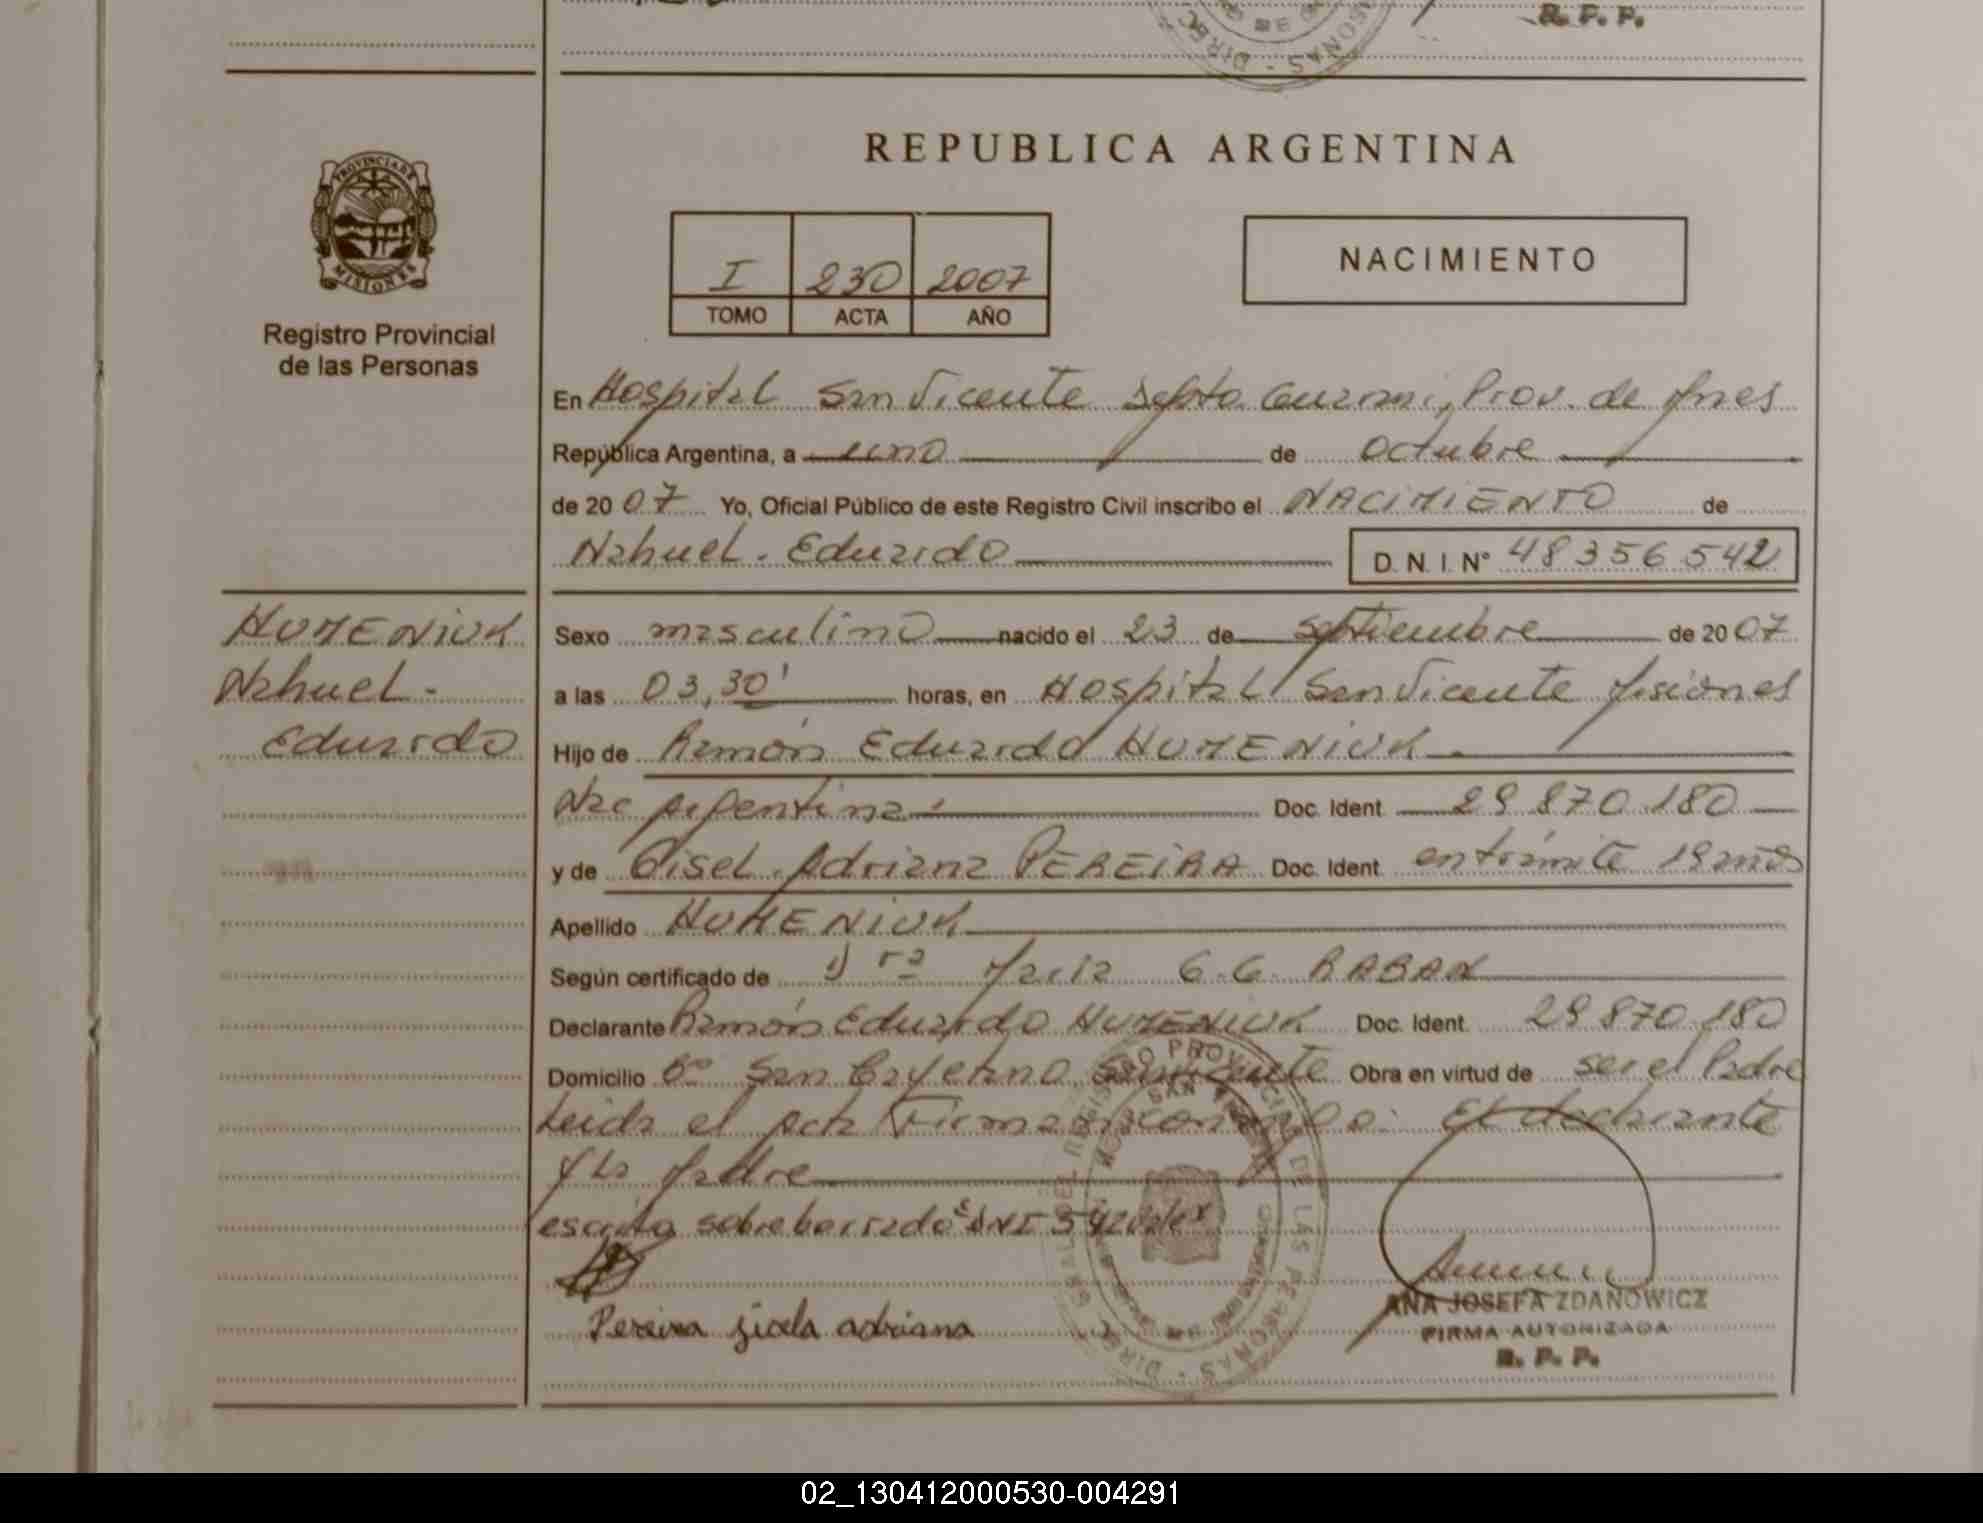 R. P. P.
REPUBLICA ARGENTINA
PROVINCIA DE
MISIONES
Registro Provincial
de las Personas
I 230 2007
TOMO ACTA AÑO
NACIMIENTO
En Hospital San Vicente Depto. Guarani, Prov. de Mnes
República Argentina, a uno de octubre
de 2007 Yo, Oficial Público de este Registro Civil inscribo el NACIMIENTO de
Nahuel. Eduardo D. N. I. N° 48356542
HUMENIUK
Nahuel.
Eduardo
Sexo masculino nacido el 23 de Septiembre de 2007
a las 03,30' horas, en Hospital San Vicente Misiones
Hijo de Ramón Eduardo HUMENIUK
Nac Argentina Doc. Ident. 29 870 180
y de Gisel. Adriana PEREIRA Doc. Ident. en trámite 19 años
Apellido HUMENIUK
Según certificado de María G. G. RABAN
Declarante Ramón Eduardo HUMENIUK Doc. Ident. 29 870 180
Domicilio Bº San Cayetano San Vicente Obra en virtud de ser el Padre
Leida el acta Firman conmigo: El declarante
y la Madre
escrito sobreborrado DNI
Pereira gisela adriana
ANA JOSEFA ZDANOWICZ
FIRMA AUTORIZADA
R. P. P.
02_130412000530-004291